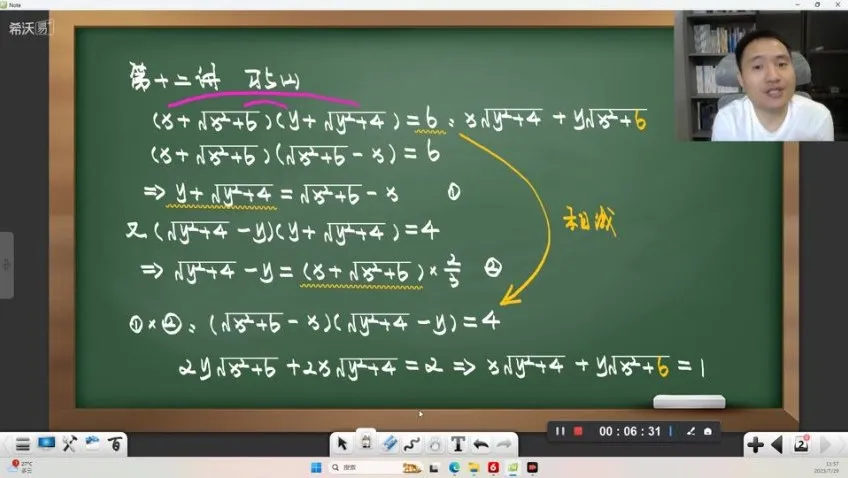 Note
希沃易+
第十二讲 巧(2)
(x+√x²+6)(y+√y²+4)=6. x√y²+4+y√x²+6
(x+√x²+6)(√x²+6-x)=6
⇒ y+√y²+4=√x²+6-x ①
又(√y²+4-y)(y+√y²+4)=4
⇒ √y²+4-y=(x+√x²+6)×2/3 ②
相减
①×②:(√x²+6-x)(√y²+4-y)=4
2y√x²+6+2x√y²+4=2⇒x√y²+4+y√x²+6=1
00:06:31
27°C
多云
搜索
11:57
2023/7/29